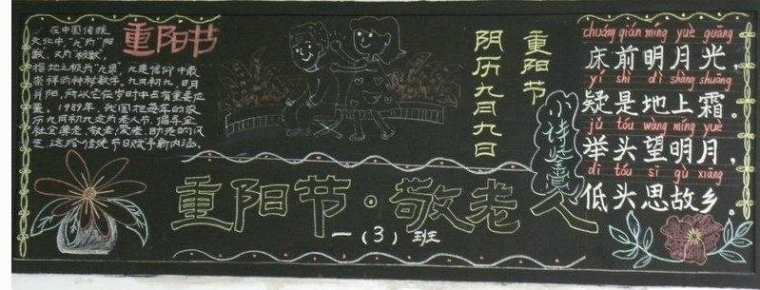 重阳节
在中国传统
文化中，"九为"阳
数，又为极数，
指地之极为"九泉"。九是信仰中最
崇拜的神秘数字。九月初九，日月
并阳，所以它在岁时中占有重要位
置。1989年，我国把每年的农
历九月初九定为老人节，倡导全
社会尊老、敬老、爱老、助老的风
气，这给传统节日赋予新内涵。
重阳节
阴历九月九日
小诗鉴赏
chuáng qián míng yuè guāng
床前明月光，
yí shì dì shàng shuāng
疑是地上霜。
jǔ tóu wàng míng yuè
举头望明月，
dī tóu sī gù xiāng
低头思故乡。
重阳节·敬老人
一（3）班